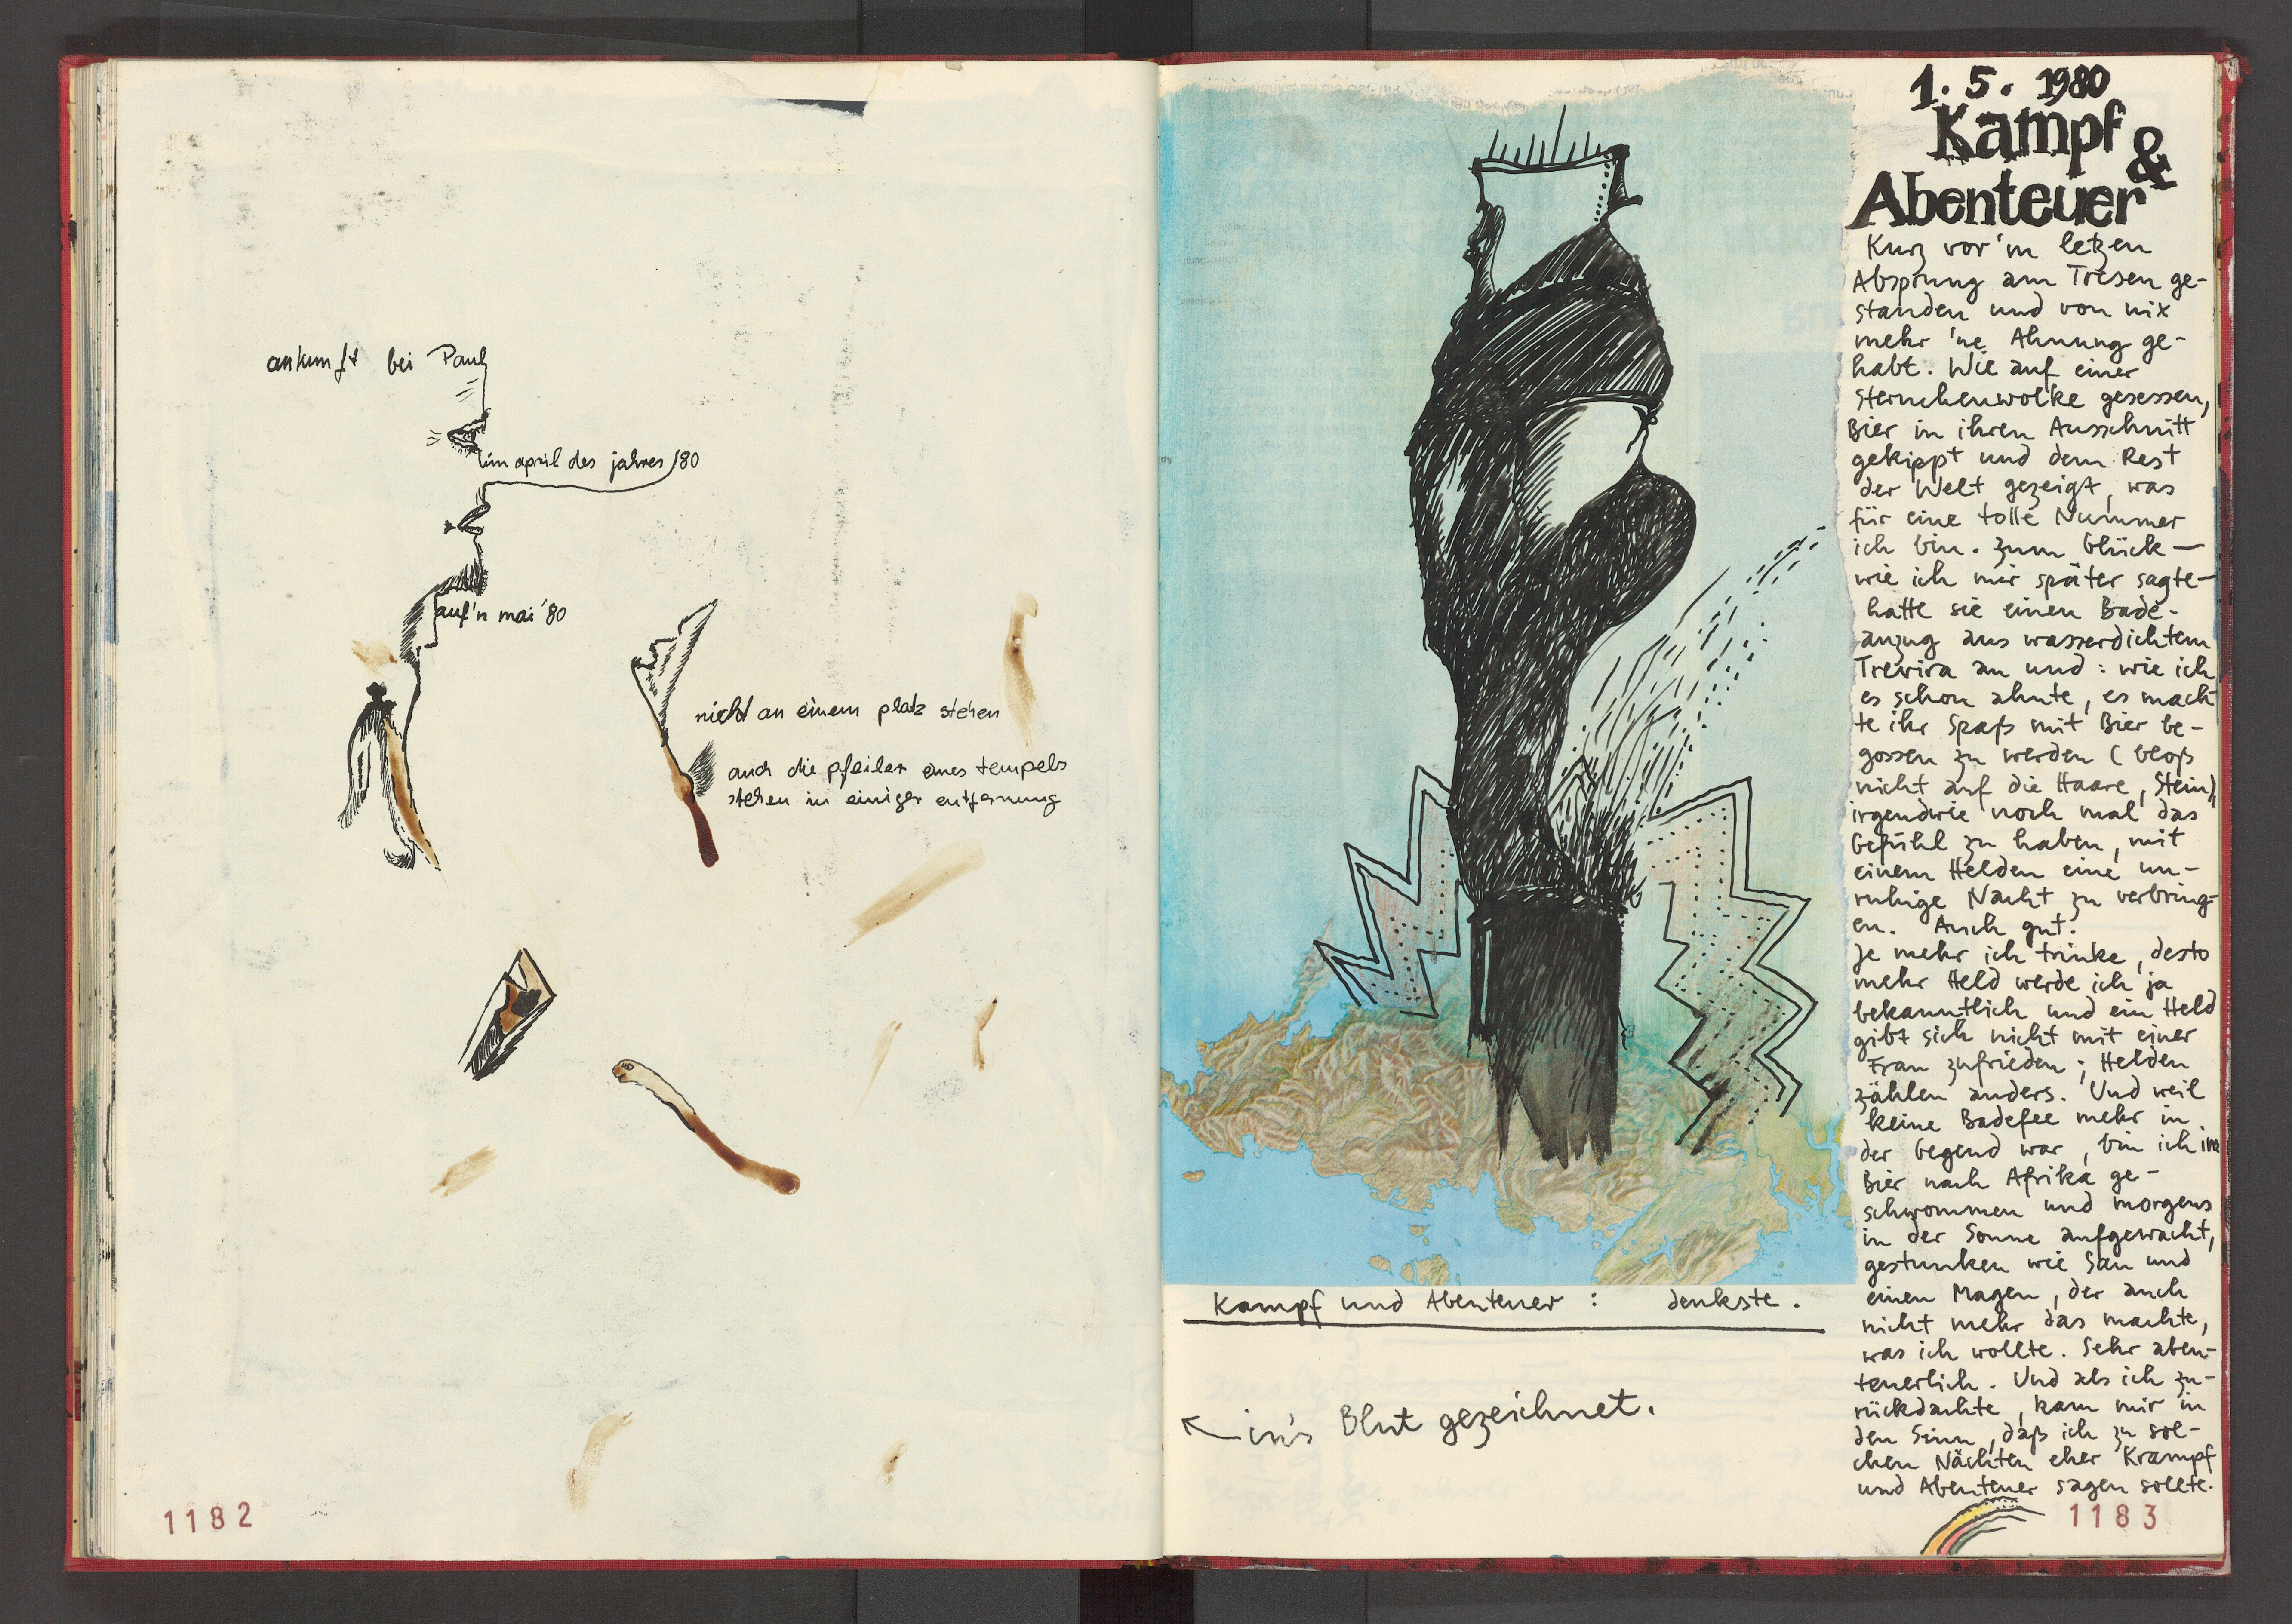 ankunft bei Paul
im april des jahres 80
auf'n mai '80
nicht an einem platz stehen
auch die pfeiler eines tempels
stehen in einiger entfernung
1182
1. 5. 1980
Kampf
&
Abenteuer
Kurz vor'm letzen
Absprung am Tresen ge-
standen und von nix
mehr 'ne Ahnung ge-
habt. Wie auf einer
Sternchenwolke gesessen,
Bier in ihren Ausschnitt
gekippt und dem Rest
der Welt gezeigt, was
für eine tolle Nummer
ich bin. Zum Glück —
wie ich mir später sagte —
hatte sie einen Bade-
anzug aus wasserdichtem
Trevira an und: wie ich
es schon ahnte, es mach
te ihr Spaß mit Bier be-
gossen zu werden (bloß
nicht auf die Haare, Stein),
irgendwie noch mal das
Gefühl zu haben, mit
einem Helden eine un-
ruhige Nacht zu verbring-
en. Auch gut.
Je mehr ich trinke, desto
mehr Held werde ich ja
bekanntlich und ein Held
gibt sich nicht mit einer
Frau zufrieden; Helden
zählen anders. Und weil
keine Badefee mehr in
der Gegend war, bin ich im
Bier nach Afrika ge-
schwommen und morgens
in der Sonne aufgewacht,
gestunken wie Sau und
einen Magen, der auch
nicht mehr das machte,
was ich wollte. Sehr aben-
teuerlich. Und als ich zu-
rückdachte, kam mir in
den Sinn, daß ich zu sol-
chen Nächten eher Krampf
und Abenteuer sagen sollte.
Kampf und Abenteuer : denkste.
in's Blut gezeichnet.
1183